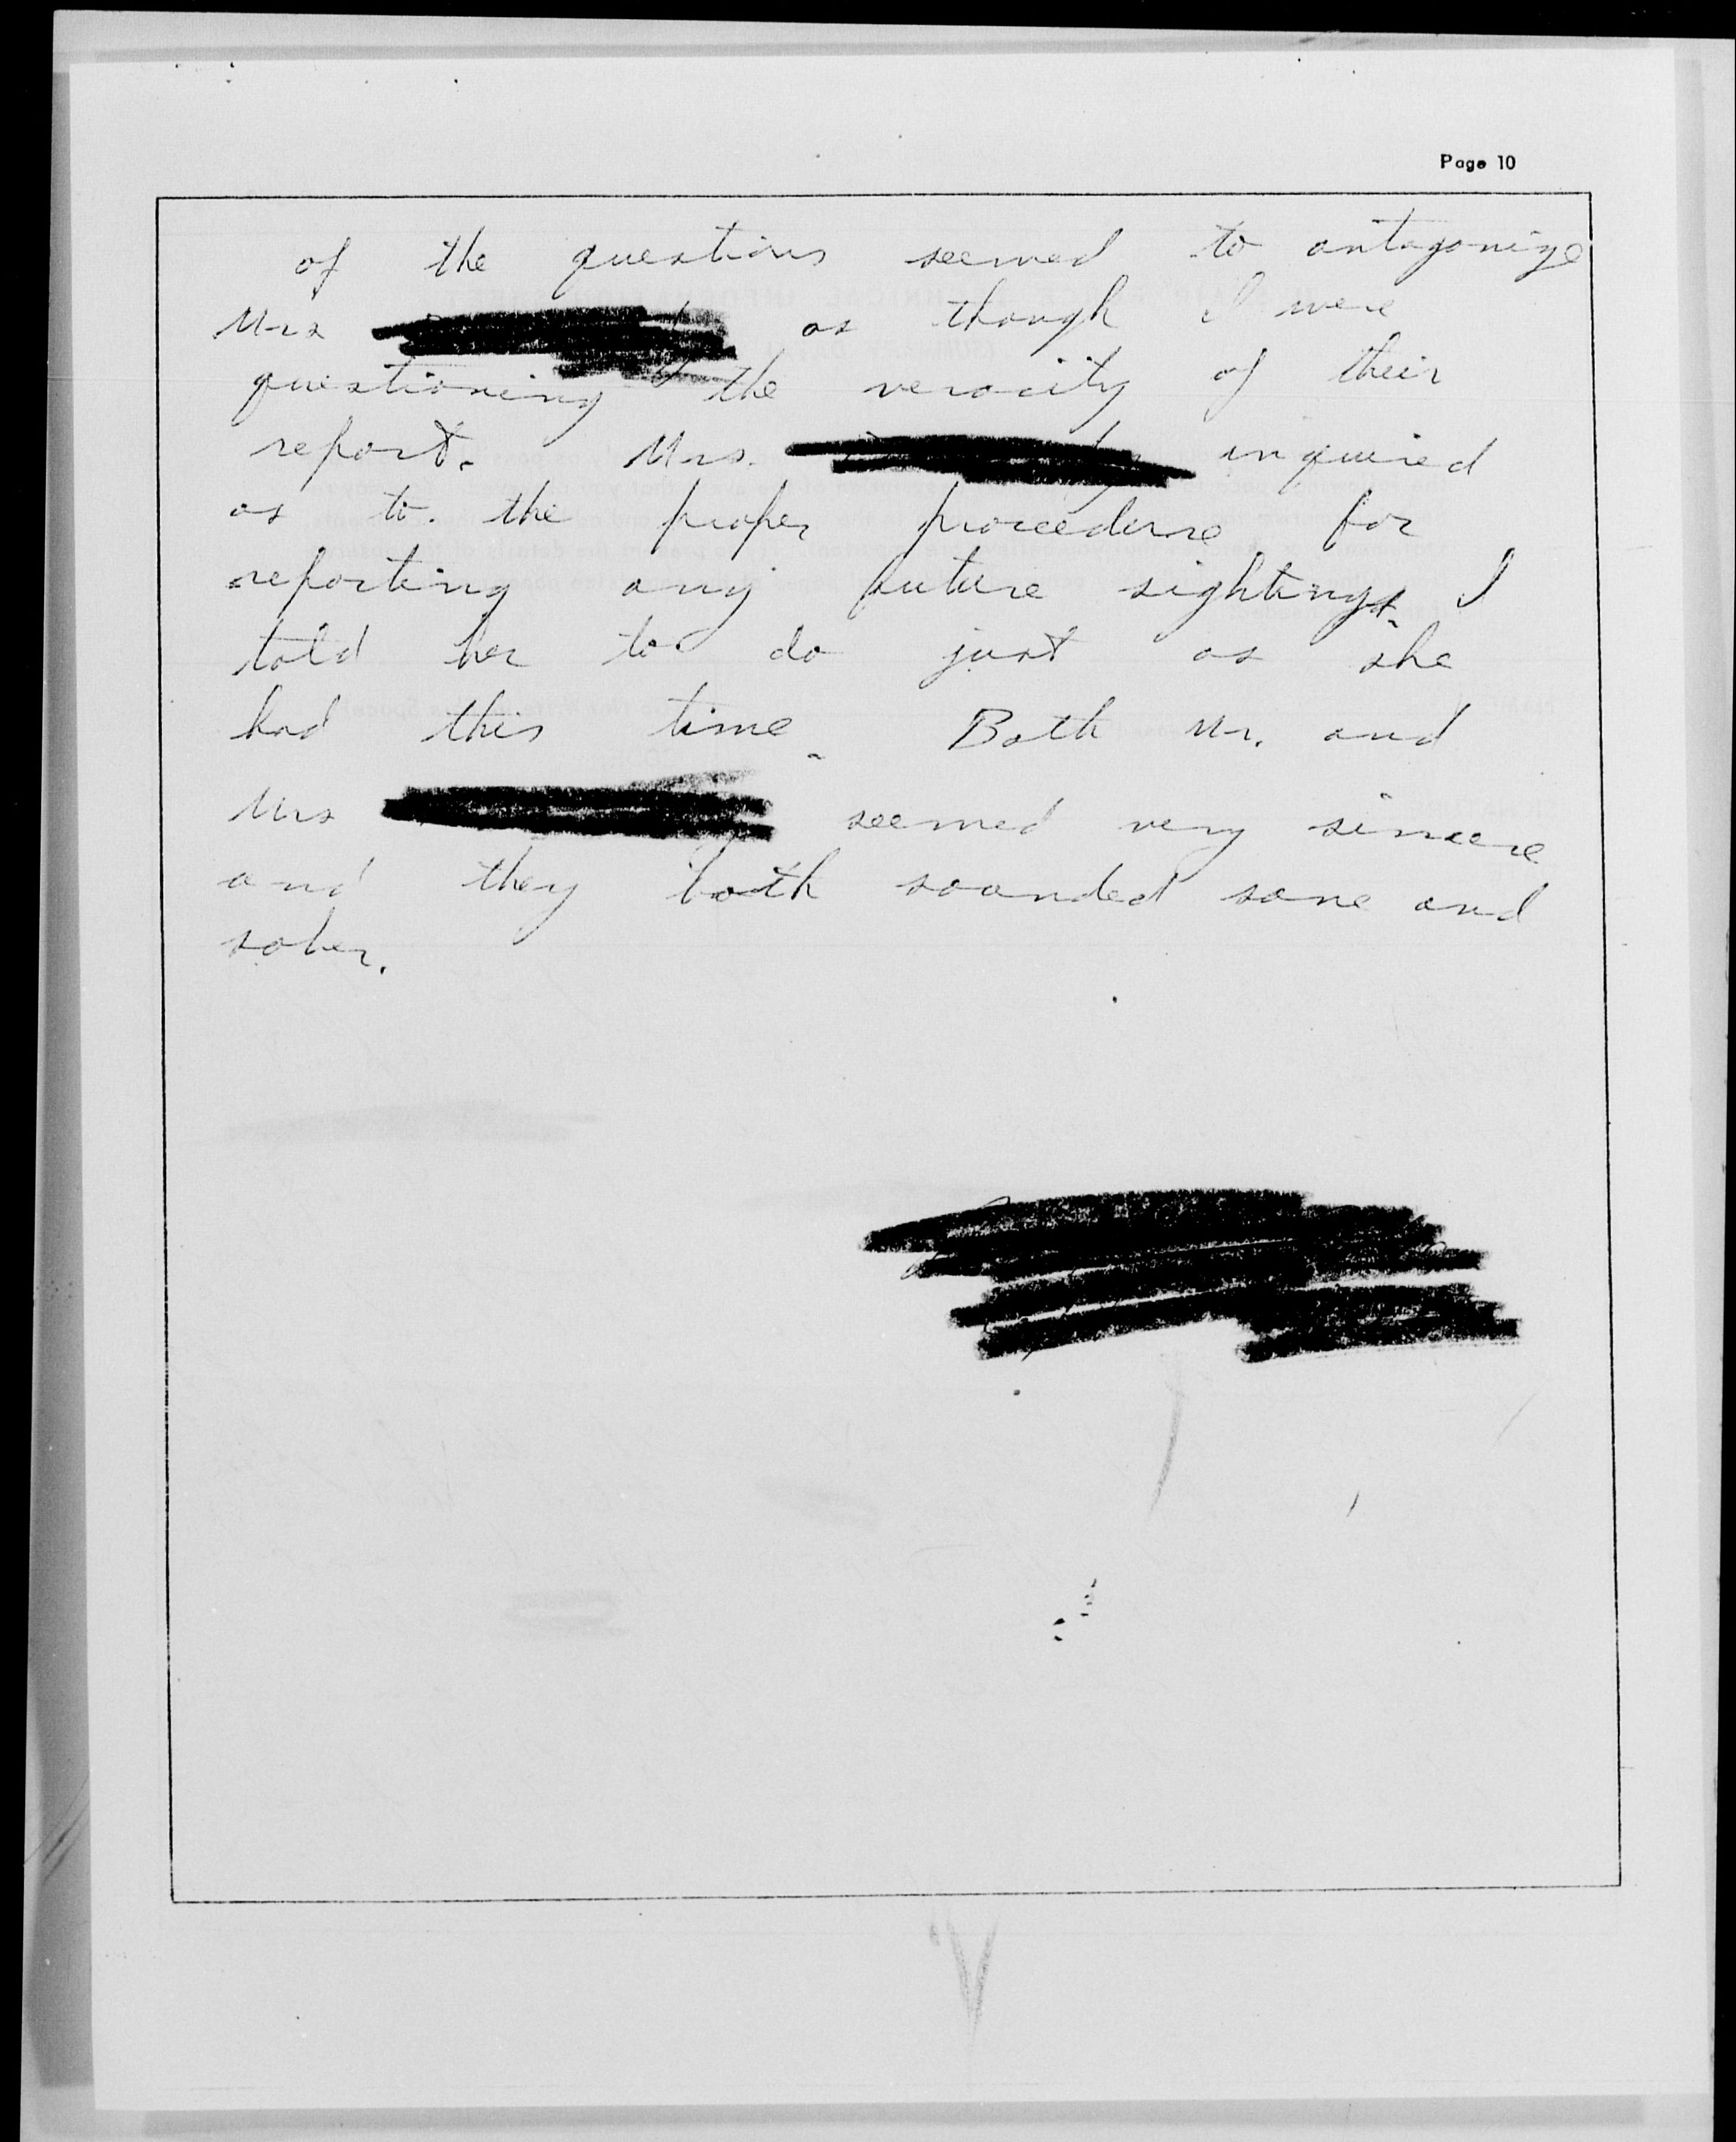 Page 10
of the questions seemed to antagonize
Mrs as though I were
questioning the veracity of their
report. Mrs. inquired
as to the proper proceedure for
reporting any future sightings. I
told her to do just as she
had this time. Both Mr. and
Mrs seemed very sincere
and they both sounded sane and
sober.